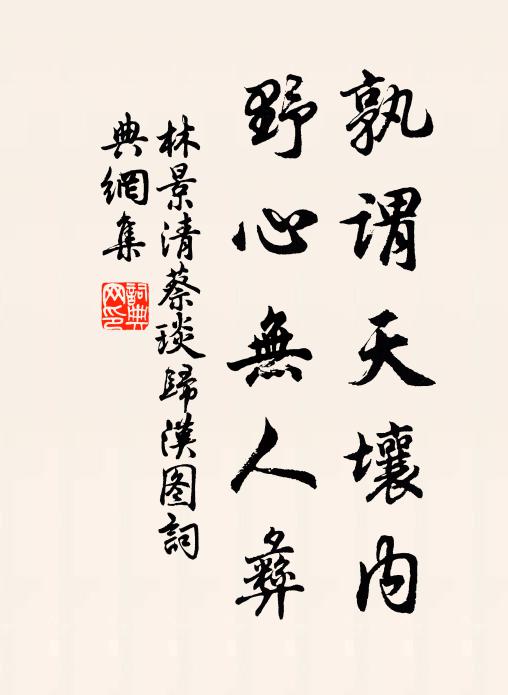 孰謂天壤内
野心無人彝
林景清蔡琰歸漢图詞
典網集
詞典网印